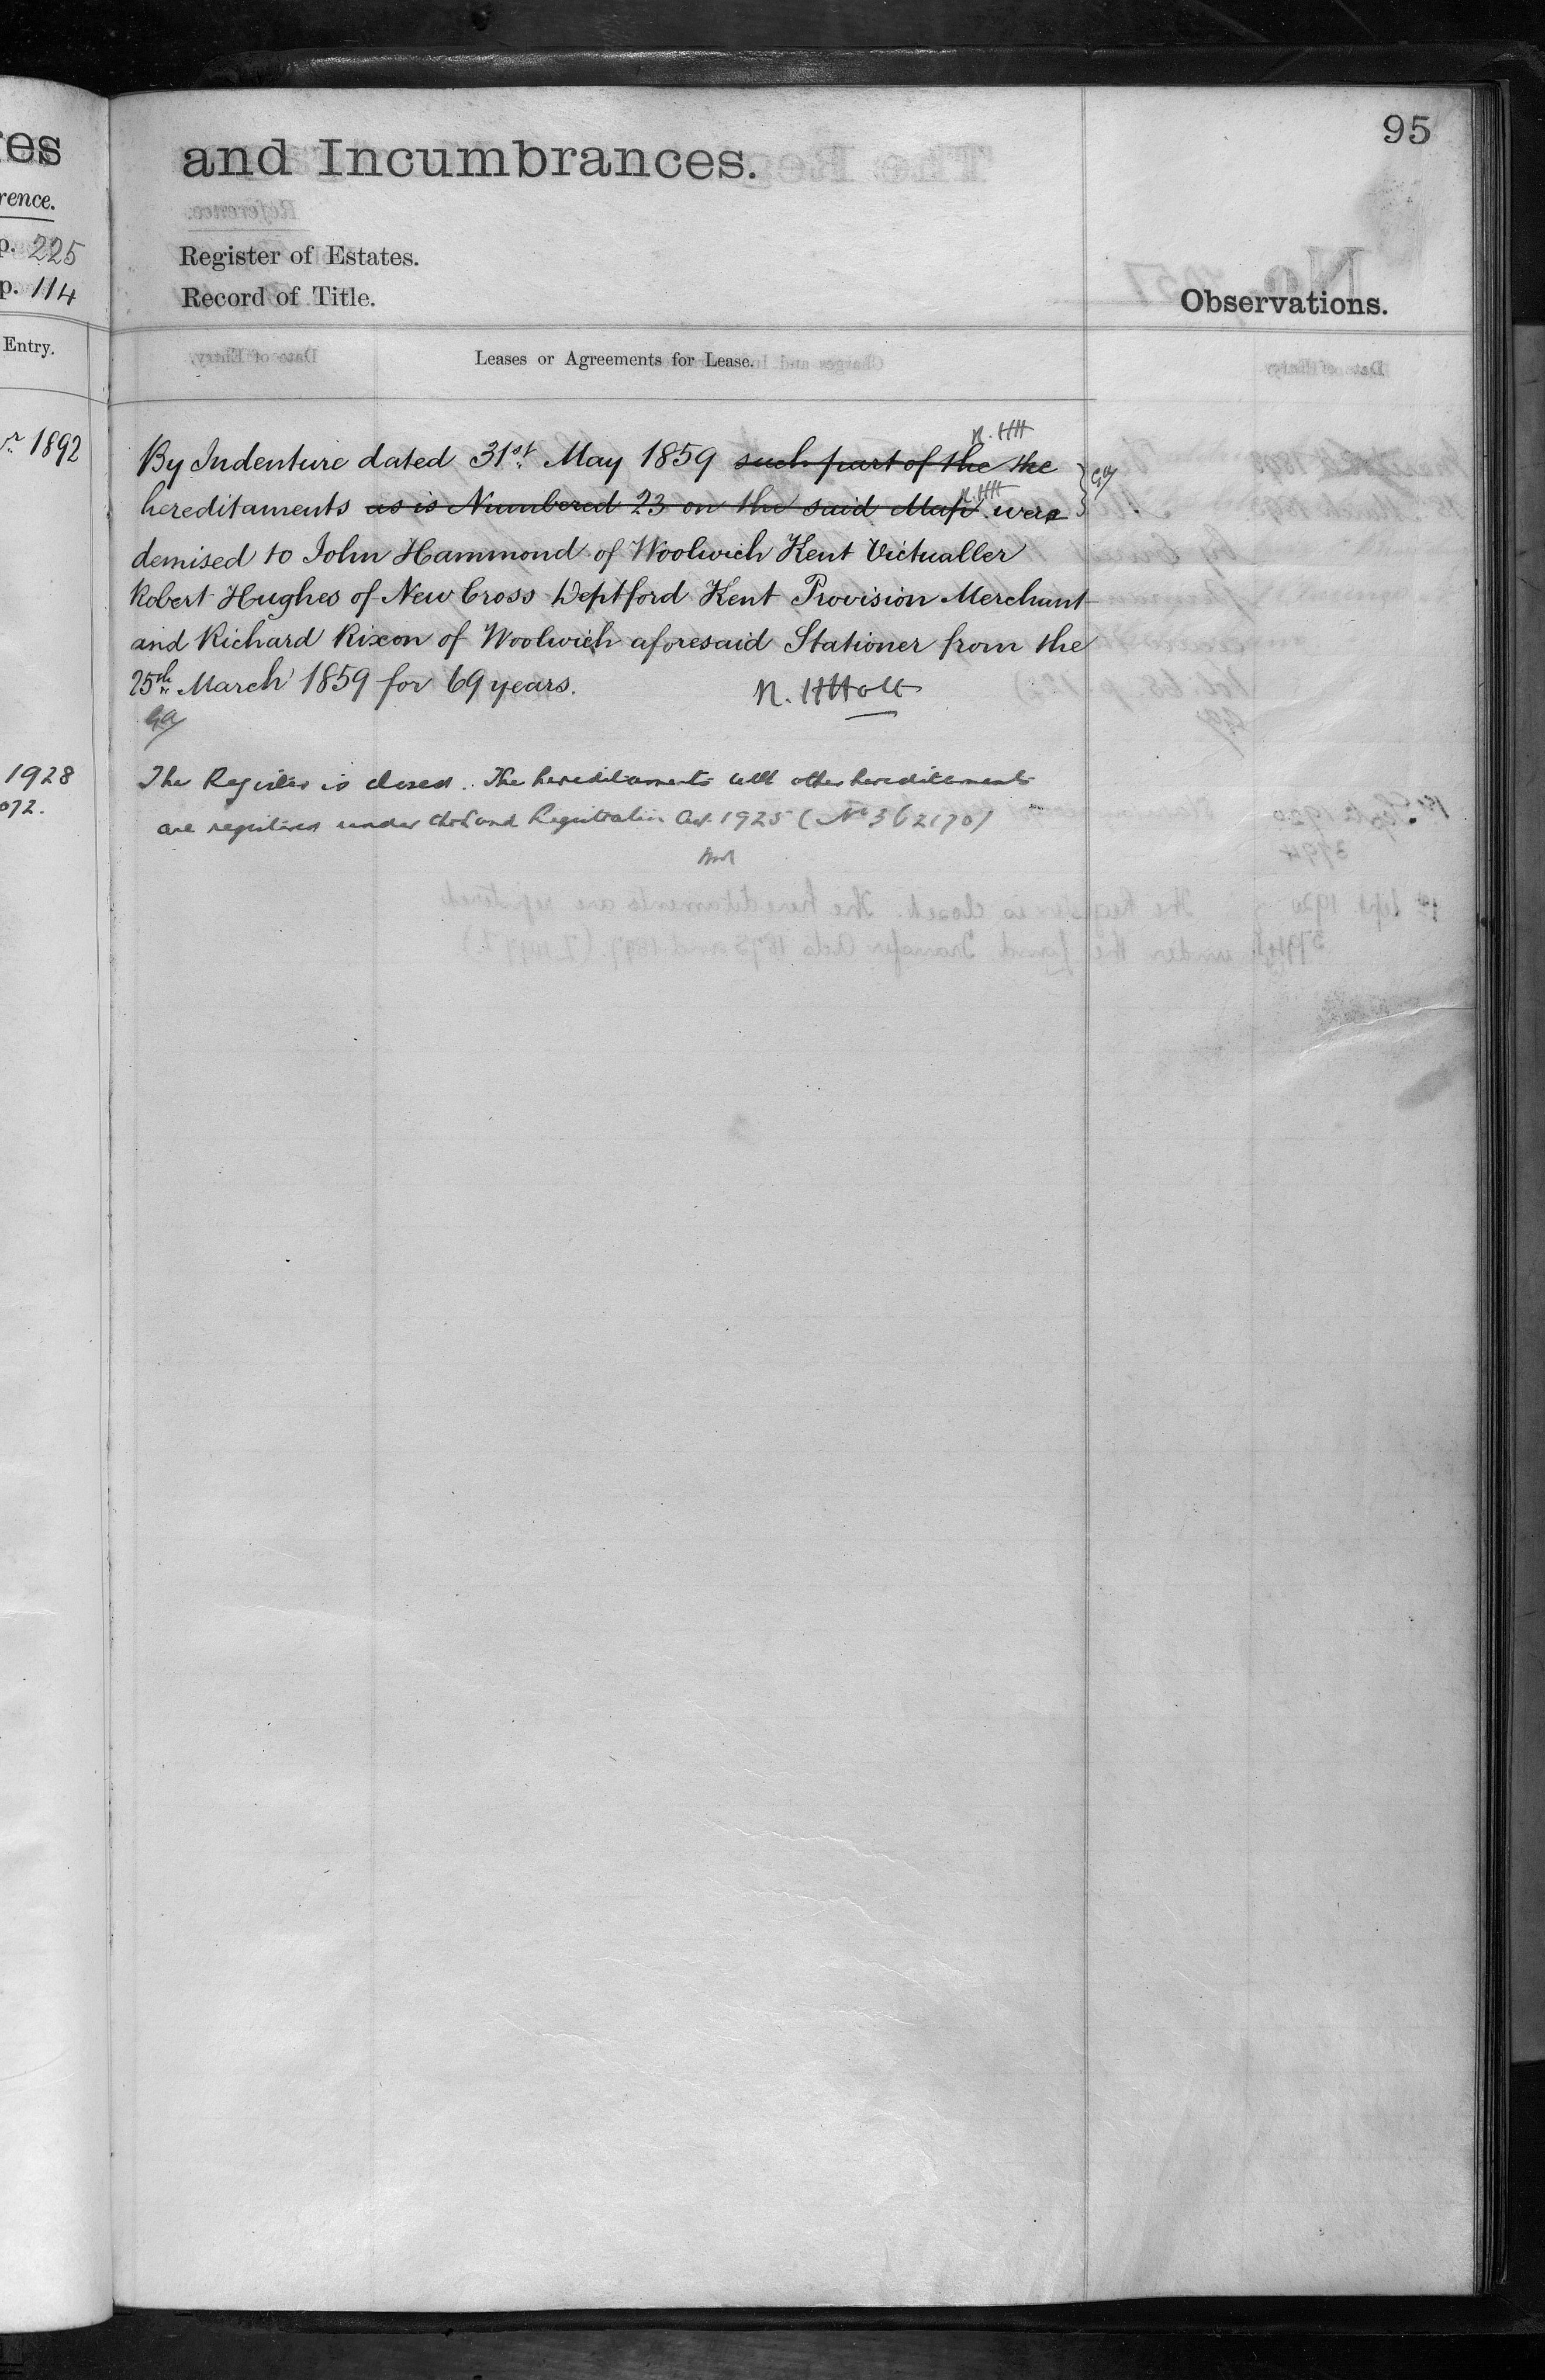 es
rence.
p. 225
p. 114
Entry.
1892
1928
072.
95
and Incumbrances.
Register of Estates.
Record of Title.
Observations.
Leases or Agreements for Lease.
N. HH
By Indenture dated 31st. May 1859 such part of the the
hereditaments as is Numbered 23 on the said Map N. HH were
demised to John Hammond of Woolwich Kent Victualler
Robert Hughes of New Cross Deptford Kent Provision Merchant
and Richard Rixon of Woolwich aforesaid Stationer from the
25th March 1859 for 69 years. N. H Holt
The Register is closed. The hereditaments with other hereditaments
are registered under the Land Registration Act 1925 (No 362170)